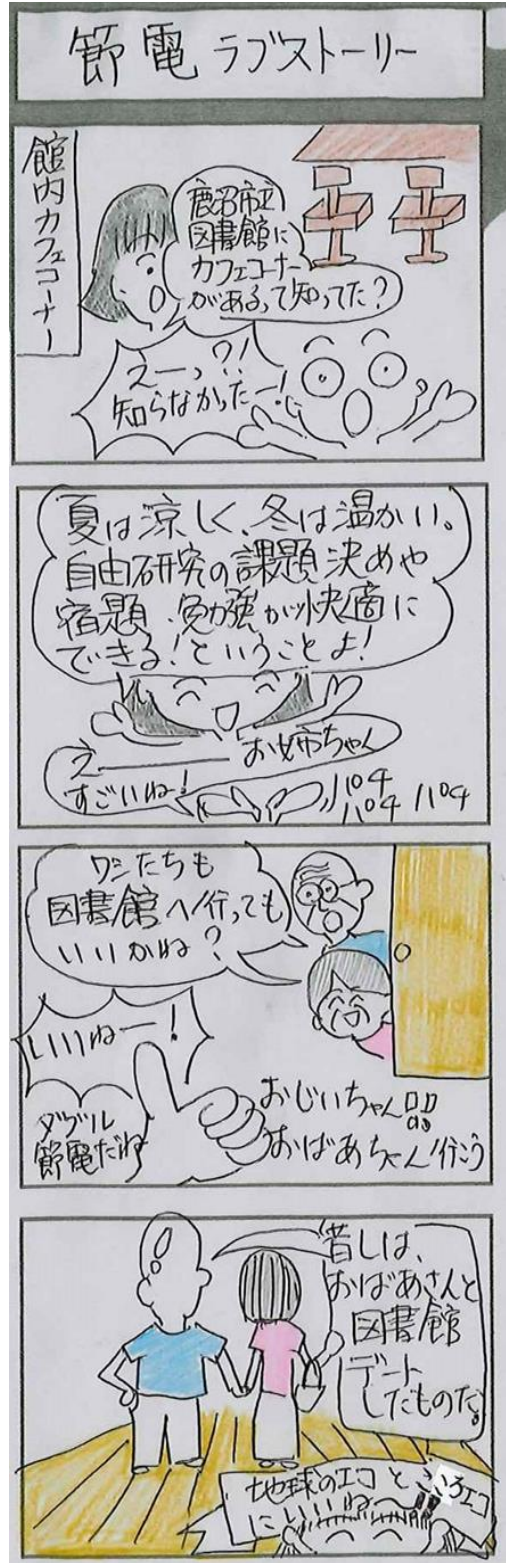 節電ラブストーリー
館内カフェコーナー
鹿沼市立
図書館に
カフェコーナー
があるって知ってた?
えーっ?!
知らなかったー!
夏は涼しく、冬は温かい。
自由研究の課題決めや
宿題、勉強が快適に
できる!ということよ!
え―――お姉ちゃん
すごいね!
パチ
パチ パチ
ワシたちも
図書館へ行っても
いいかね?
いいねー!
ダブル
節電だね
おじいちゃん
おばあちゃん行こう
昔しは、
おばあさんと
図書館
デート
したものだ。
地球のエコと
にいいね〜